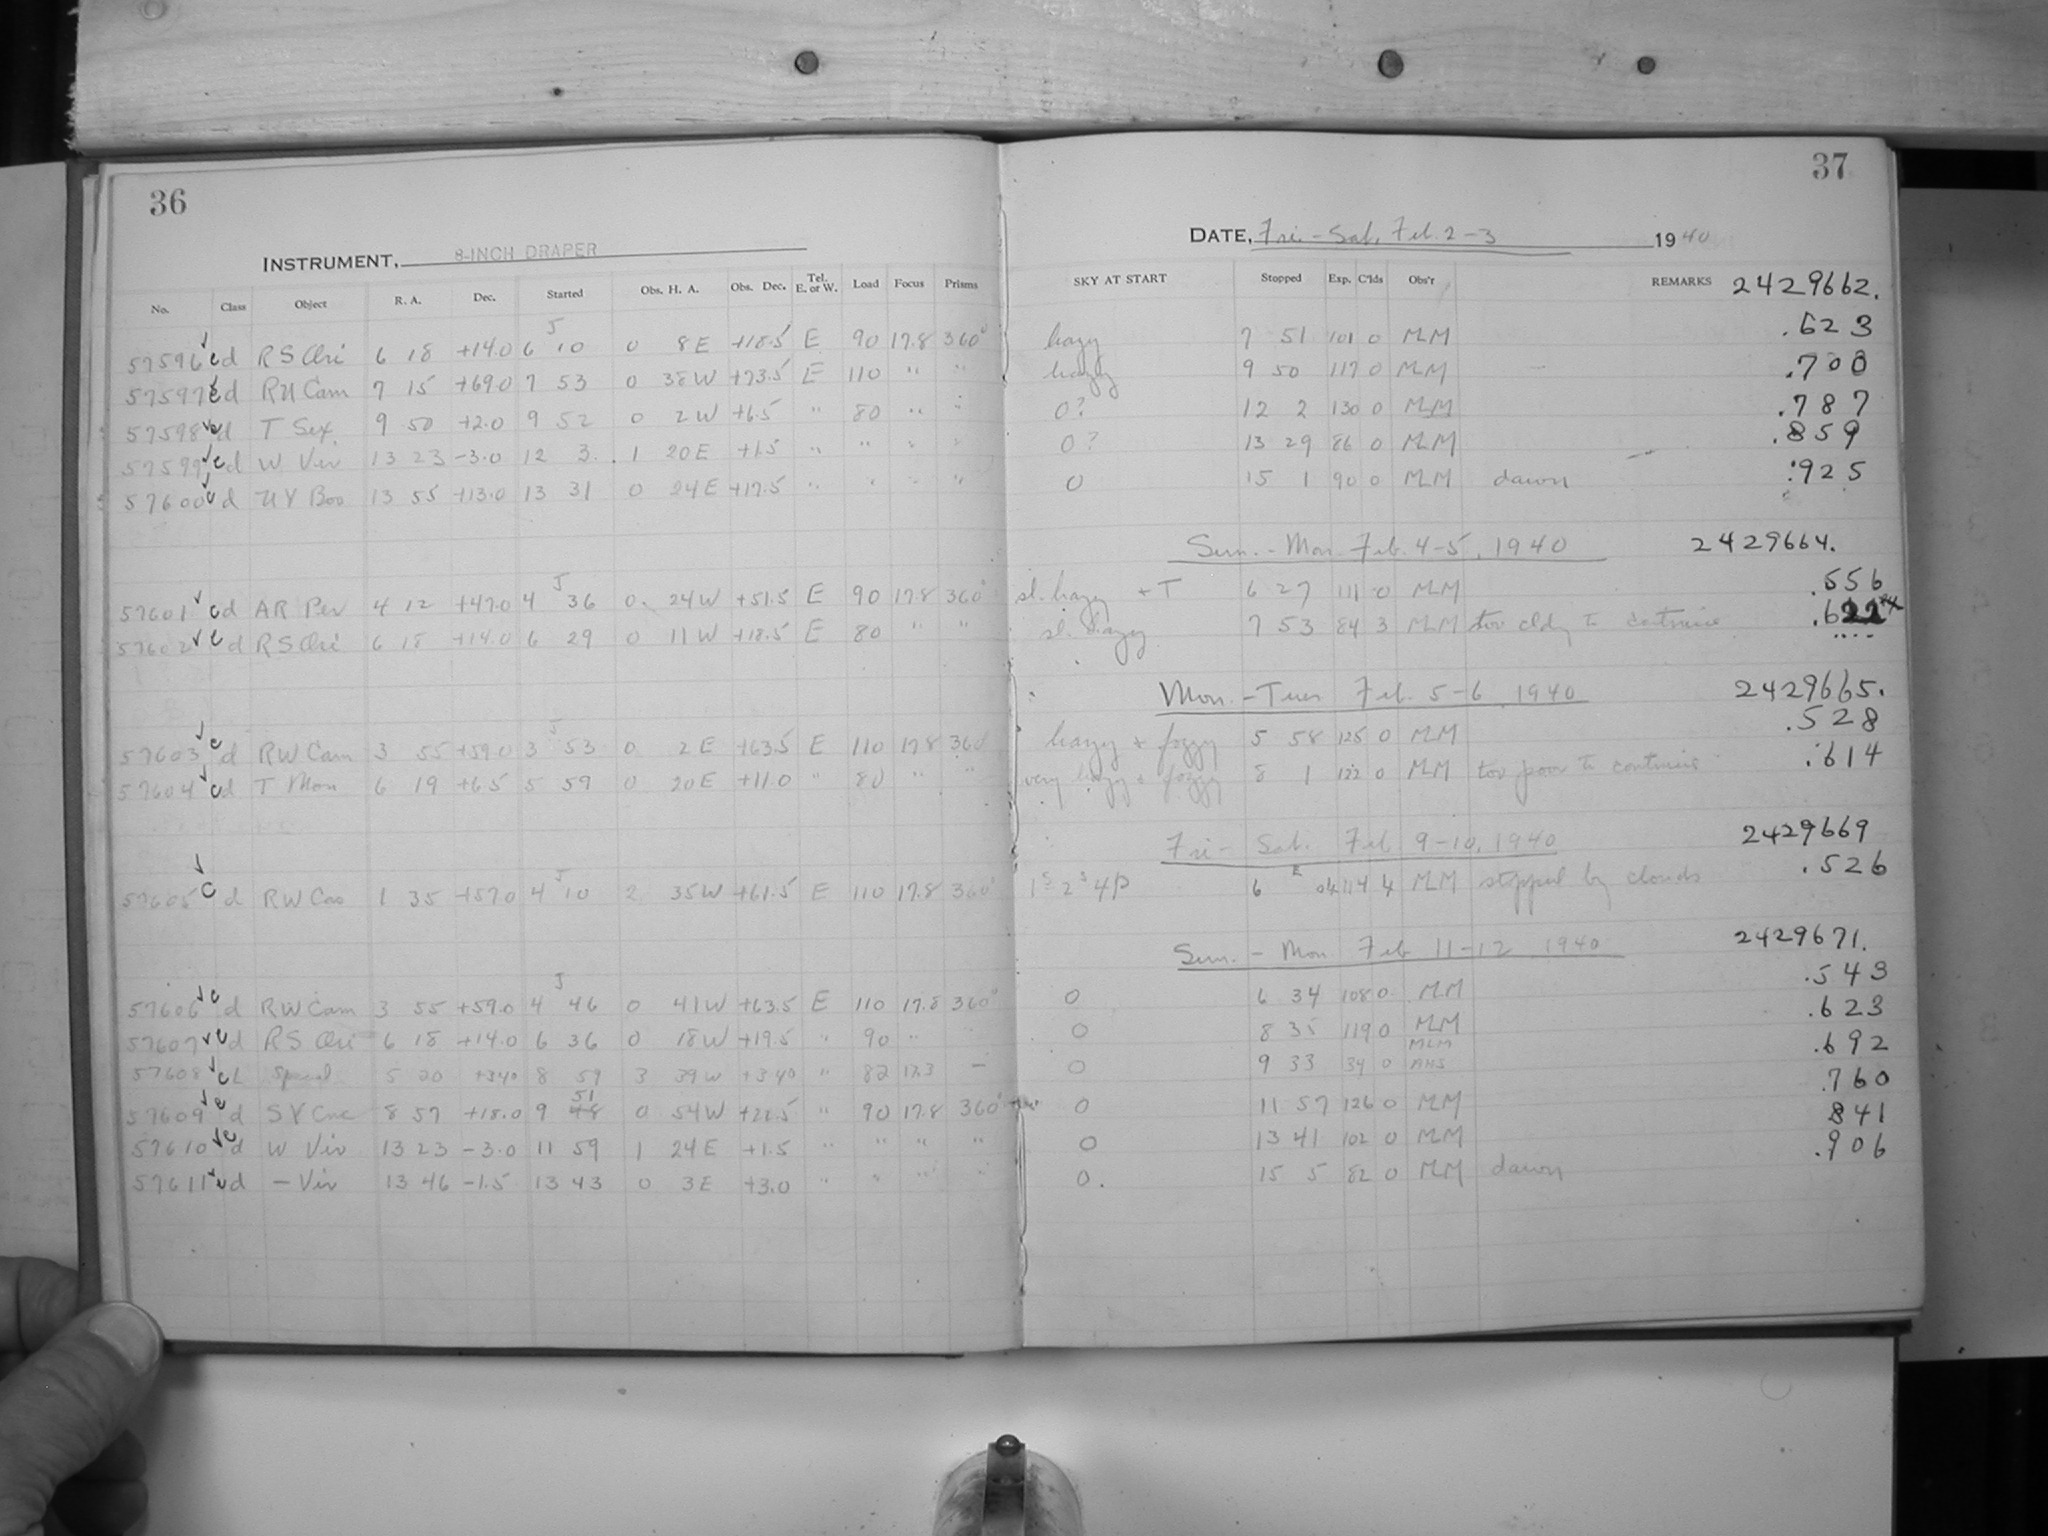 36
INSTRUMENT, 8-INCH DRAPER
No. Class Object R. A. Dec. Started Obs. H. A. Obs. Dec. Tel. E. or W. Load Focus Prisms
57596 cd RS Ori 6 18 +14.0 6 10 0 8E +18.5 E 90 17.8 360°
57597 cd RU Cam 7 15 +69.0 7 53 0 38W +73.5 E 110 " "
57598 cd T Sex 9 50 +2.0 9 52 0 2W +6.5 " 80 " "
57599 cd W Vir 13 23 -3.0 12 3 1 20E +1.5 " " " "
57600 cd UY Boo 13 55 +13.0 13 31 0 24E +17.5 " " " "
57601 cd AR Per 4 12 +47.0 4 36 0 24W +51.5 E 90 17.8 360°
57602 cd RS Ori 6 18 +14.0 6 29 0 11W +18.5 E 80 " "
57603 cd RW Cam 3 55 +59.0 3 53 0 2E +63.5 E 110 17.8 360
57604 cd T Mon 6 19 +6.5 5 59 0 20E +11.0 " 80 " "
57605 cd RW Cas 1 35 +57.0 4 10 2 35W +61.5 E 110 17.8 360°
57606 cd RW Cam 3 55 +59.0 4 46 0 41W +63.5 E 110 17.8 360°
57607 cd RS Ori 6 18 +14.0 6 36 0 18W +19.5 " 90 "
57608 cL Special 5 20 +340 8 59 3 39W +340 " 82 12.3 —
57609 cd SY Cnc 8 57 +18.0 9 51 0 54W +22.5 " 90 17.8 360°
57610 cd W Vir 13 23 -3.0 11 59 1 24E +1.5 " " " "
57611 cd — Vir 13 46 -1.5 13 43 0 3E +3.0 " " " "
37
DATE, Fri. - Sat, Feb. 2-3 1940
SKY AT START Stopped Exp. C'lds Obs'r REMARKS 2429662.
hazy 7 51 101 0 MM .623
hazy 9 50 117 0 MM .700
0? 12 2 130 0 MM .787
0? 13 29 86 0 MM .859
0 15 1 90 0 MM dawn .925
Sun. - Mon. Feb. 4-5, 1940 2429664.
sl. hazy + T 6 27 111 0 MM .556
sl. hazy 7 53 84 3 MM too cldy to continue .622
Mon. - Tues Feb. 5-6 1940 2429665.
hazy + foggy 5 58 125 0 MM .528
very hazy + foggy 8 1 122 0 MM too poor to continue .614
Fri - Sat. Feb 9-10, 1940 2429669
1s 2s 4p 6 E 04 114 4 MM stopped by clouds .526
Sun. - Mon Feb 11-12 1940 2429671.
0 6 34 108 0 MM .543
0 8 35 119 0 MM .623
0 9 33 34 0 MLM AHS .692
0 11 57 126 0 MM .760
0 13 41 102 0 MM 841
0. 15 5 82 0 MM dawn .906